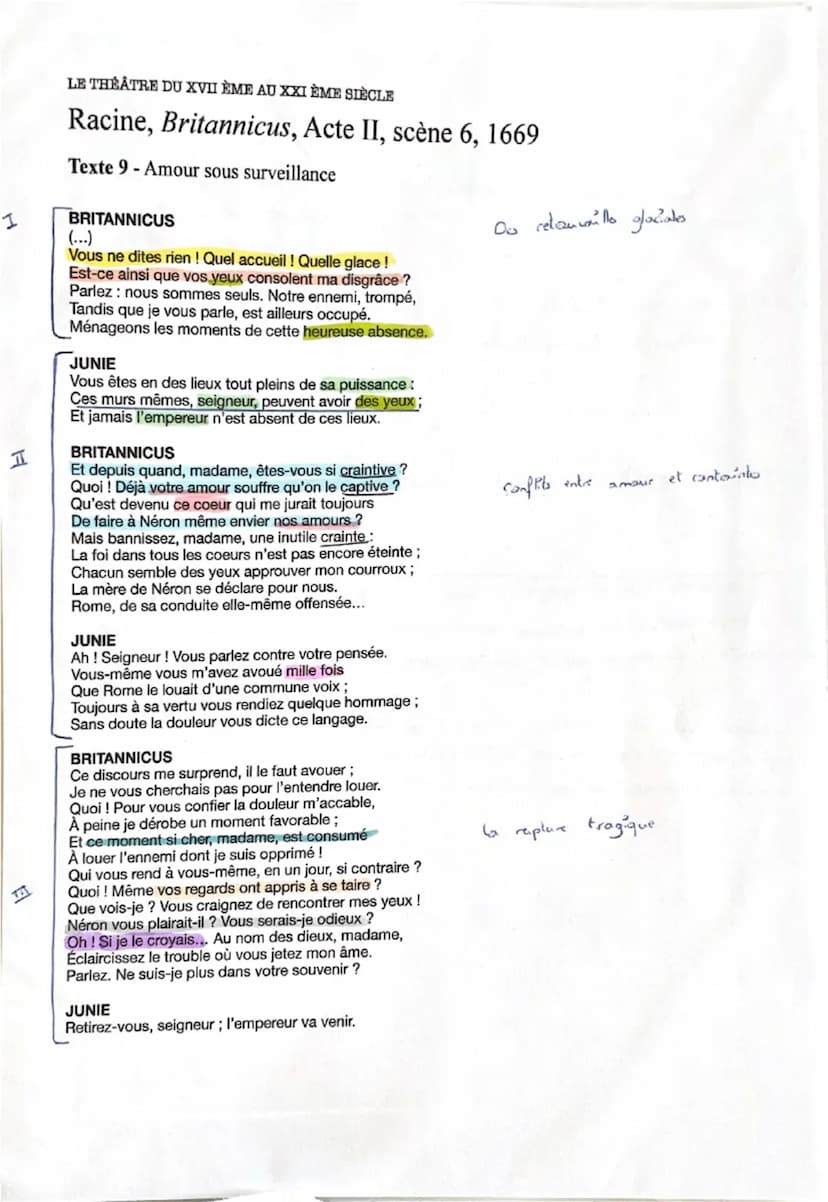 LE THÉÂTRE DU XVII ÈME AU XXI ÈME SIÈCLE
Racine, Britannicus, Acte II, scène 6, 1669
Texte 9 - Amour sous surveillance
I
BRITANNICUS
Des retrouvailles glaciales
(...)
Vous ne dites rien ! Quel accueil ! Quelle glace !
Est-ce ainsi que vos yeux consolent ma disgrâce ?
Parlez : nous sommes seuls. Notre ennemi, trompé,
Tandis que je vous parle, est ailleurs occupé.
Ménageons les moments de cette heureuse absence.
JUNIE
Vous êtes en des lieux tout pleins de sa puissance :
Ces murs mêmes, seigneur, peuvent avoir des yeux ;
Et jamais l'empereur n'est absent de ces lieux.
II
BRITANNICUS
Et depuis quand, madame, êtes-vous si craintive ?
Quoi ! Déjà votre amour souffre qu'on le captive ?
conflits entre amour et contrainte
Qu'est devenu ce coeur qui me jurait toujours
De faire à Néron même envier nos amours ?
Mais bannissez, madame, une inutile crainte :
La foi dans tous les coeurs n'est pas encore éteinte ;
Chacun semble des yeux approuver mon courroux ;
La mère de Néron se déclare pour nous.
Rome, de sa conduite elle-même offensée...
JUNIE
Ah ! Seigneur ! Vous parlez contre votre pensée.
Vous-même vous m'avez avoué mille fois
Que Rome le louait d'une commune voix ;
Toujours à sa vertu vous rendiez quelque hommage ;
Sans doute la douleur vous dicte ce langage.
BRITANNICUS
Ce discours me surprend, il le faut avouer ;
Je ne vous cherchais pas pour l'entendre louer.
Quoi ! Pour vous confier la douleur m'accable,
À peine je dérobe un moment favorable ;
La rupture tragique
Et ce moment si cher, madame, est consumé
À louer l'ennemi dont je suis opprimé !
Qui vous rend à vous-même, en un jour, si contraire ?
III
Quoi ! Même vos regards ont appris à se taire ?
Que vois-je ? Vous craignez de rencontrer mes yeux !
Néron vous plairait-il ? Vous serais-je odieux ?
Oh ! Si je le croyais... Au nom des dieux, madame,
Éclaircissez le trouble où vous jetez mon âme.
Parlez. Ne suis-je plus dans votre souvenir ?
JUNIE
Retirez-vous, seigneur ; l'empereur va venir.